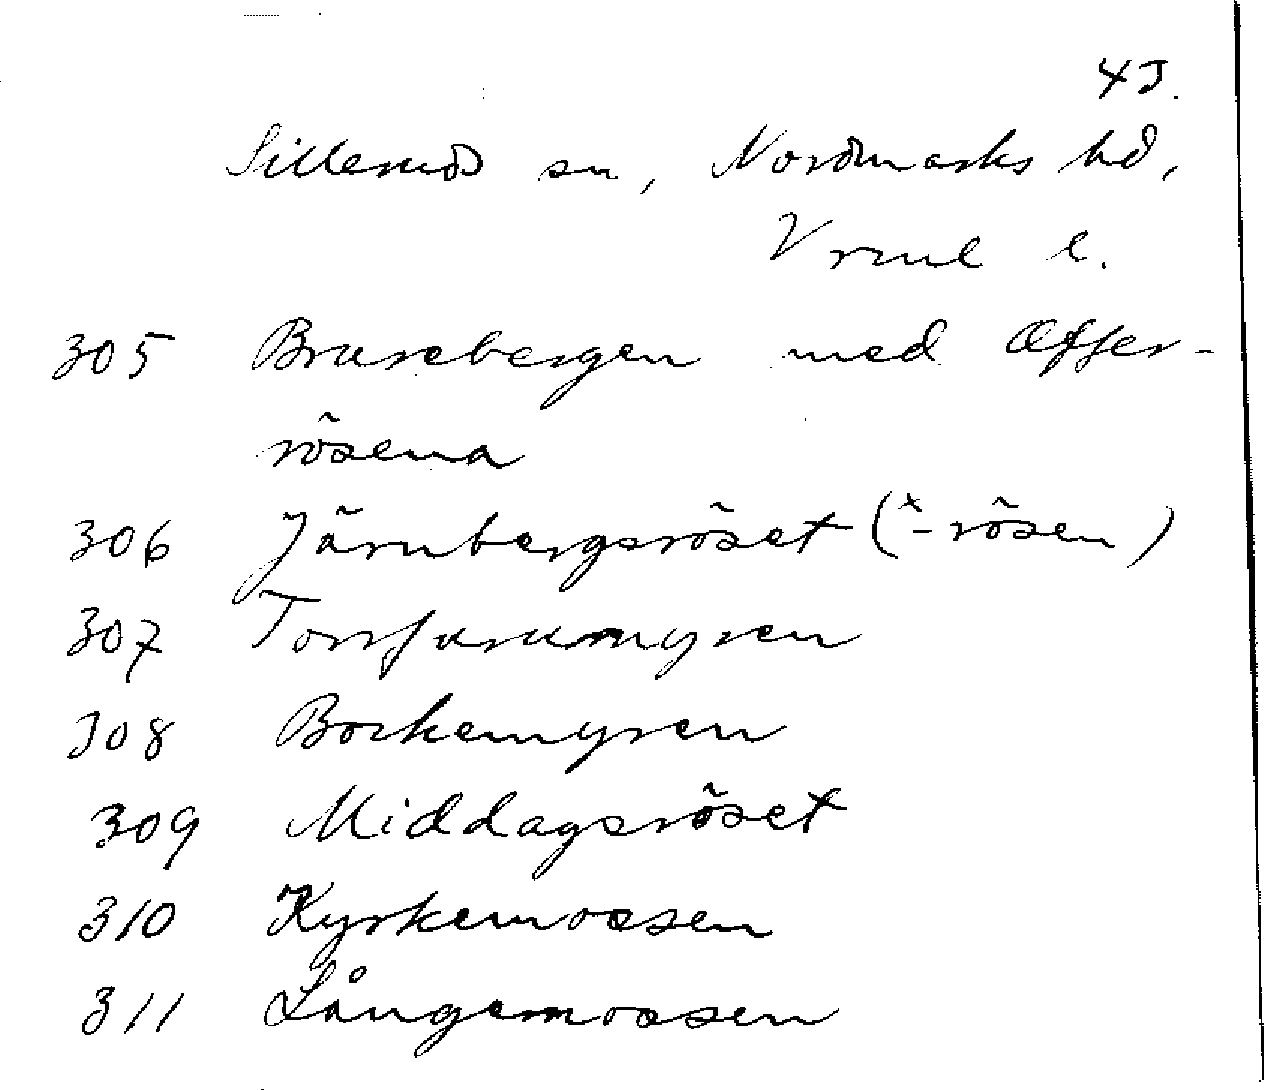 43.
Sillerud sn, Nordmarks hd,
Vrml l.
305 Brurebergen med Offer-
rösena
306 Järnbergsröset (×̶-rösen)
307 Torrfurumyren
308 Bockemyren
309 Middagsröset
310 Kyrkemossen
311 Långemossen